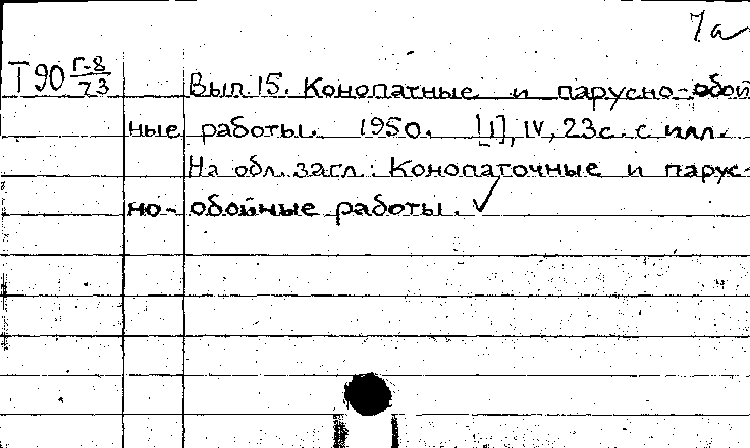 7а
Т90 Г-8/73 Вып. 15. Конопатные и парусно-обой
ные работы. 1950. [1], IV, 23с. с илл.
На обл. загл.: Конопаточные и парус-
но-обойные работы. ✓